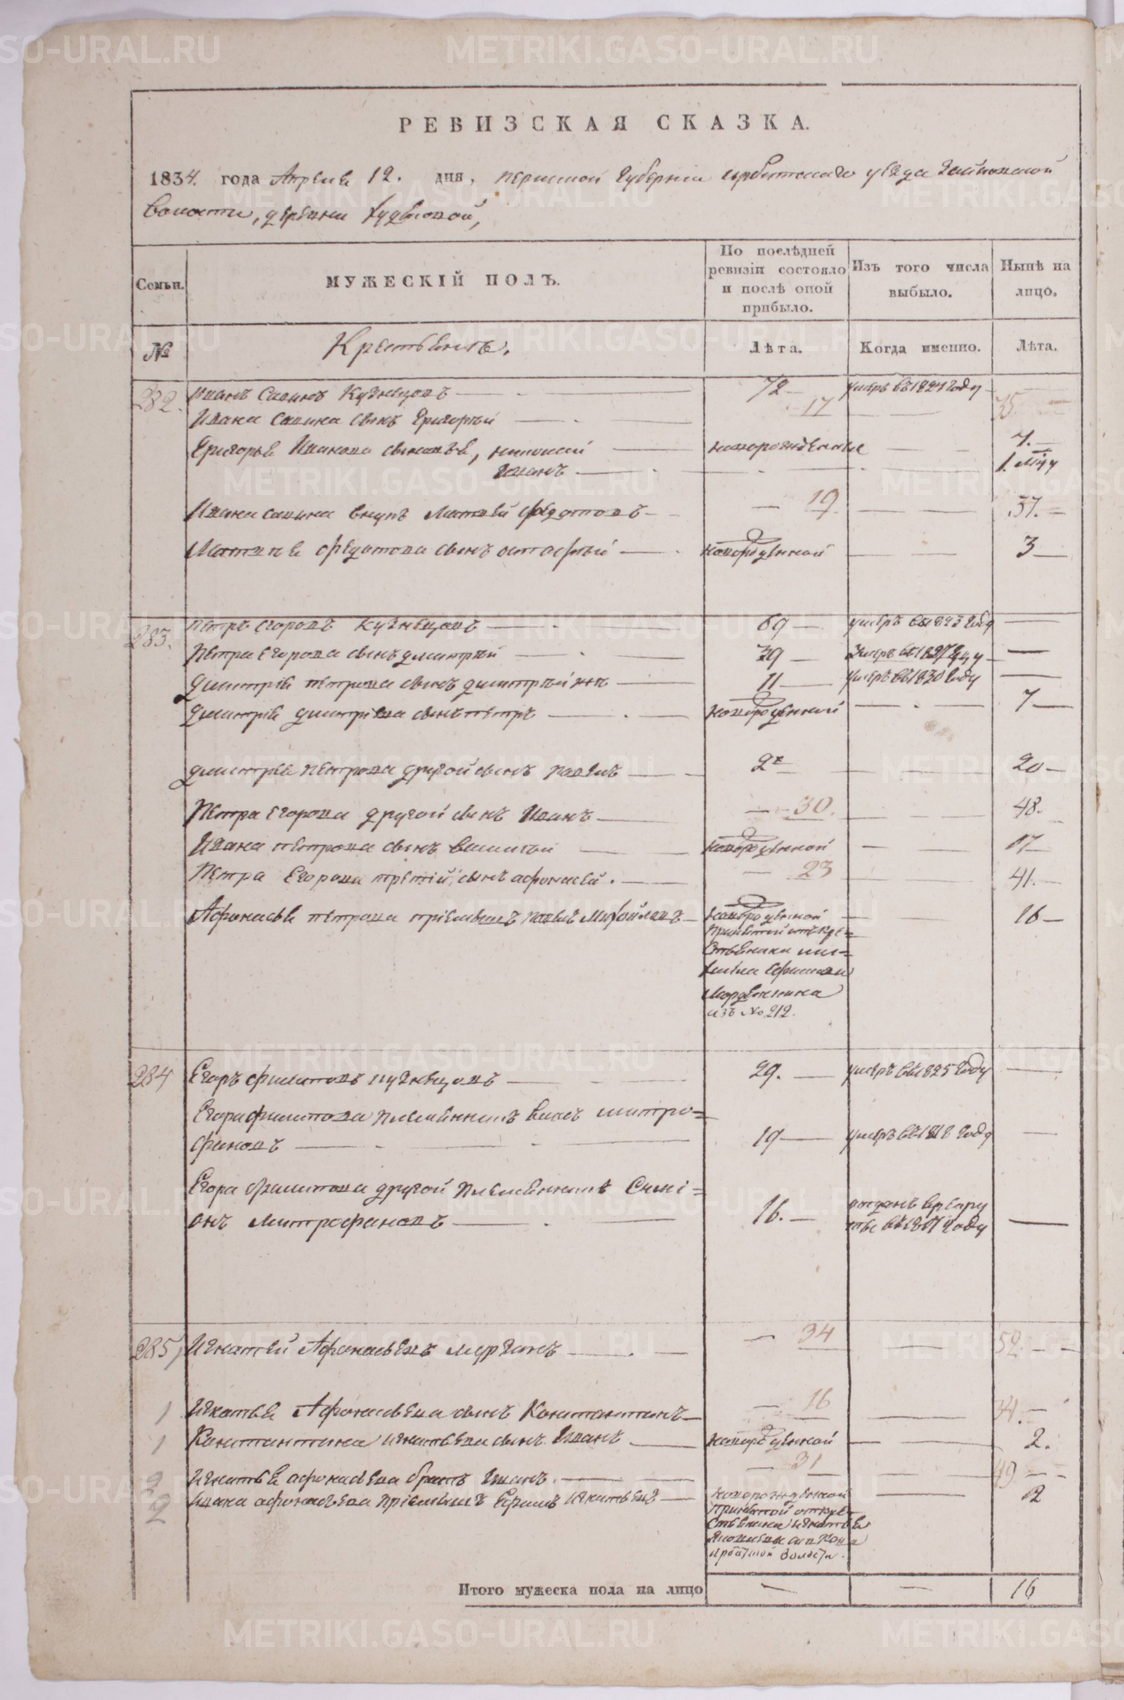 РЕВИЗСКАЯ СКАЗКА.
1834. года Апреля 12. дня, Пермской Губернiи Ирбитскаго уезда
волости, деревни
Семьи.
МУЖЕСКІЙ ПОЛЪ.
По послѣдней ревизіи состояло и послѣ оной прибыло.
Изъ того числа выбыло.
Нынѣ на лицо.
№
Крестьянъ.
Лѣта.
Когда именно.
Лѣта.
282.
Иванъ Савинъ Кузнецовъ — 72 — умеръ въ 1827 году —
Ивана Савина сынъ Григорей — 17 — 35.
Григорья Иванова сыновья, новорожденные — 7. —
Иванъ —
Ивана Савина внукъ Матвей Федотовъ — 19 — 37. —
Матвея Федотова сынъ — новорожденной — 3 —
283.
Петръ Егоровъ Кузнецовъ — 69 — умеръ въ 1823 году —
Петра Егорова сынъ Дмитрей — 39 — умеръ въ году —
Дмитрiя Петрова сынъ Дмитрей — 11 — умеръ въ 1830 году —
Дмитрiя Дмитрiева сынъ Петръ — новорожденной — 7 —
Дмитрiя Петрова другой сынъ Павелъ — 2 — 20 —
Петра Егорова другой сынъ Иванъ — 30. — 48.
Ивана Петрова сынъ Василей — новорожденной — 17 —
Петра Егорова третiй сынъ Афонасей. — 23 — 41. —
Афонасья Петрова прiемышъ Павелъ Михайловъ — новорожденной — 16 —
принятой отъ кре=
стьянина
изъ № 212.
284
Егоръ Филиповъ Кузнецовъ — 29. — умеръ въ 1825 году —
Егора Филипова племянникъ Власъ Митро=
фановъ — 19 — умеръ въ 1818 году —
Егора Филипова другой племянникъ Симi=
онъ Митрофановъ — 16. — отданъ в рекру
ты въ 1817 году —
285
Игнатей Афонасьевъ — 34 — 52 —
1 Игнатья Афонасьева сынъ Константинъ — 16 — 34. —
1 Константина Игнатьева сынъ Иванъ — новорожденной — 2.
2 Игнатья Афонасьева братъ Иванъ. — 31 — 49 —
2 Ивана Афонасьева прiемышъ Игнатьевъ — новорожденной — 12
принятой отъ кре=
стьянина Игнатья
волости.
Итого мужеска пола на лицо — — 16
METRIKI.GASO-URAL.RU